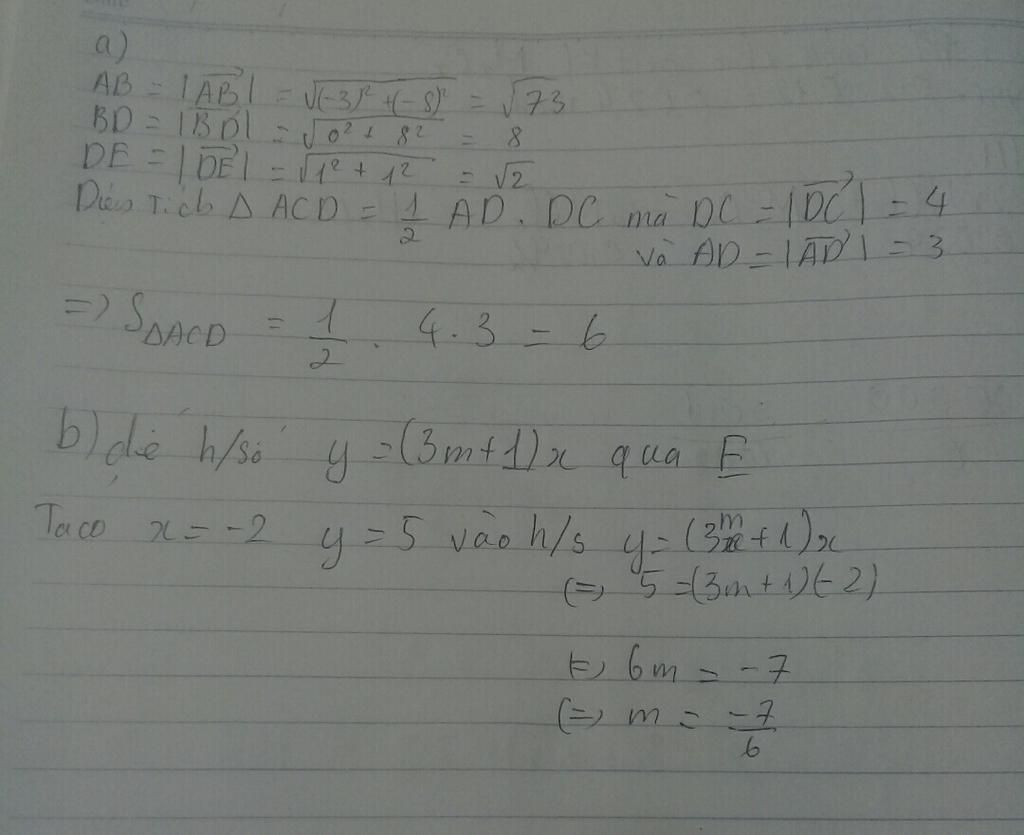 a)
AB = |AB| = √(-3)² + (-8)² = √73
BD = |BD| = √0² + 8² = 8
DE = |DE| = √1² + 1² = √2
Diện tích Δ ACD = 1/2 AD . DC mà DC = |DC| = 4
và AD = |AD| = 3
=> SΔACD = 1/2 . 4 . 3 = 6
b) để h/số y = (3m+1)x qua E
Ta có x = -2 y = 5 vào h/s y = (3m+1)x
(=) 5 = (3m+1)(-2)
(=) 6m = -7
(=) m = -7/6